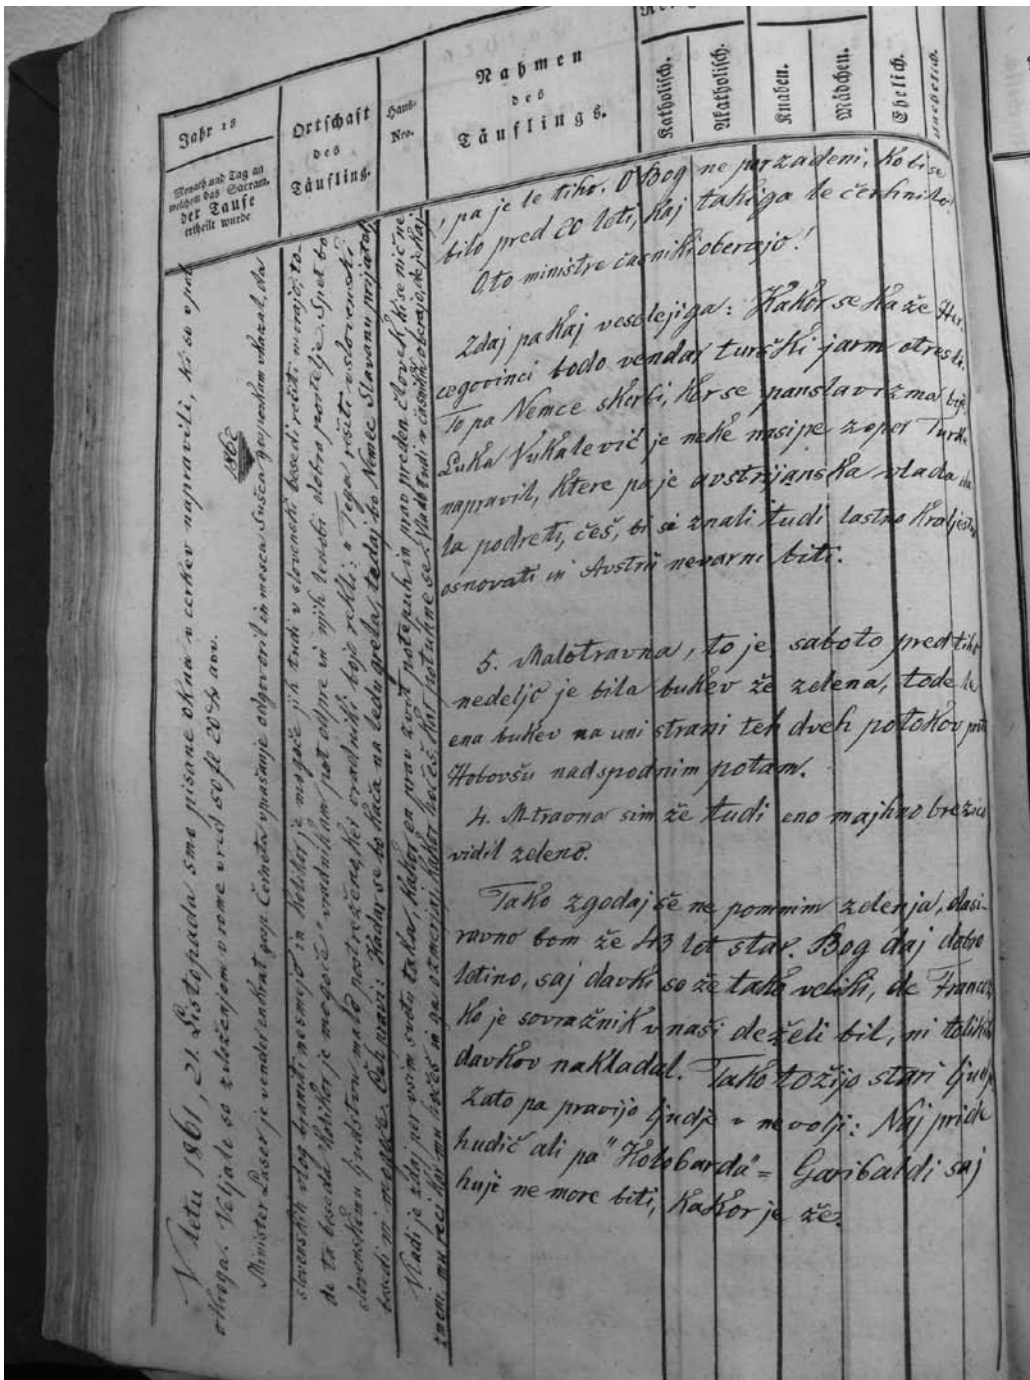 Jahr is
Monath und Tag an
welchem das Sacram.
der Taufe
ertheilt wurde
Ortschaft
des
Täufling.
Haus-
Nro.
Nahmen
des
Täuflings.
Katholisch.
Akatholisch.
Knaben.
Mädchen.
Ehelich.
Unehelich.
V letu 1861, 21. Listopada smo pisane okna v cerkev napravili, ki so v pod
okroga. Veljale so z vloženjam vrome vred 50 fl 20 kr nov.
1862
Minister Laser je vender enkrat gosp. Černeta vprašanje odgovoril in mesca Sušca gospodam vkazal, da
slovenskih vlog braniti ne smejo in kolikor je mogoče jih tudi v slovenski besedi rešiti morajo, to-
de ta beseda "kolikor je mogoče" vradnikam pot odpre in njih lenobi dobro postelje. Spet bo
slovenskimu ljudstvu malo postreženo, ker vradniki bojo rekli: "Tega rešiti v slovenski
besedi ni mogoče. Čeh pravi: Kadar se bo kača na ledu grela, tedaj bo Nemec Slavanu prijatel,
Vladi je zdaj per vsim svetu taka, kakor en prav zvit potepuh in prav preden človek, ki se nič ne
zmeni, mu reci kar mu hočeš in ga ozmerjaj kakor hočeš kar potuhne se. Vlado tudi v časnikih oberajo, de je kaj
, pa je le tiho. O Bog ne porzadeni, ko bi se
bilo pred 20 leti, kaj takiga le čerhnilo!
O, to ministre časniki oberajo!
Zdaj pa kaj veselejiga: Kakor se kaže Her-
cegovinci bodo vendar turški jarm otresli.
To pa Nemce skerbi, ker se panslavizma boje
Luka Vukalevič je neke nasipe zoper Turke
napravil, ktere pa je avstrijanska vlada da-
la podreti, češ, bi si znali tudi lastno kraljestvo
osnovati in Avstrii nevarni biti.
5. Malotravna, to je, saboto pred tiho
nedeljo je bila bukev že zelena, tode le
ena bukev na uni strani teh dveh potokov proti
Hobovšu nad spodnim potam.
4. M-travna sim že tudi eno majhno brezico
vidil zeleno.
Tako zgodaj še ne pomnim zelenja, dasi-
ravno bom že 43 let star. Bog daj dobro
letino, saj davki so že tako veliki, de Francoz,
ko je sovražnik v naši deželi bil, ni tolikih
davkov nakladal. Tako tožijo stari ljudje
Zato pa pravijo ljudje v nevolji: Naj pride
hudič ali pa "Holobarda" = Garibaldi saj
huji ne more biti, kakor je že.